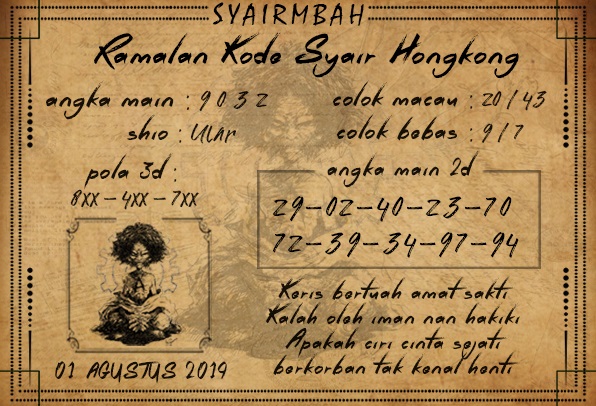 SYAIRMBAH
Ramalan Kode Syair Hongkong
angka main : 9 0 3 2
colok macau : 20 / 43
shio : Ular
colok bebas : 9 / 7
pola 3d :
8XX – 4XX – 7XX
angka main 2d
29-02-40-23-70
72-39-34-97-94
Keris bertuah amat sakti
Kalah oleh iman nan hakiki
Apakah ciri cinta sejati
berkorban tak kenal henti
01 AGUSTUS 2019